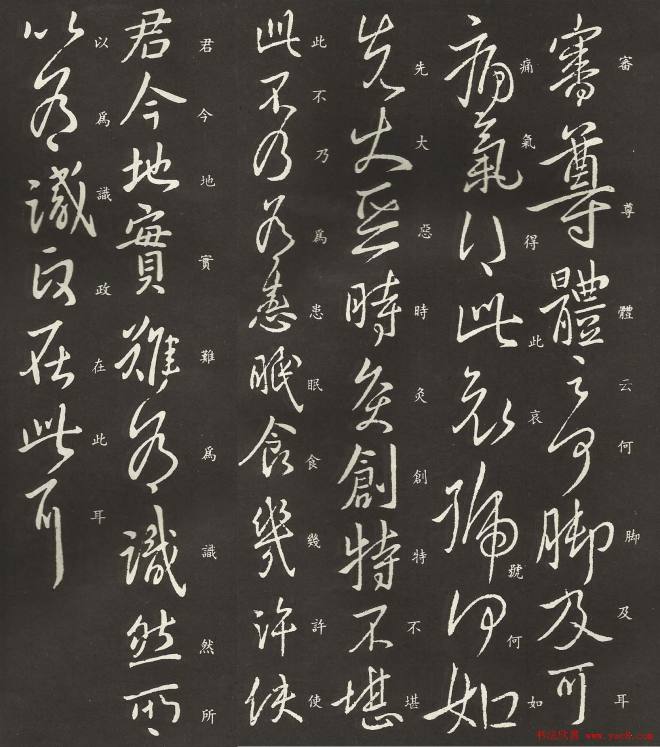 審尊體云何脚及耳
痛氣得此哀號何如
先大惡時灸創特不堪
此不乃爲患眠食幾許使
君今地實難爲識然所
以爲識政在此耳
书法欣赏 www.yac8.com